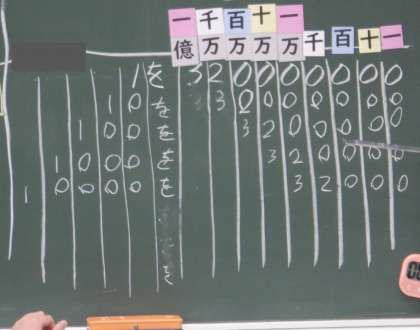 一千百十一
億万万万万千百十一
1を320000000
10を32000000
100を3200000
1000を320000
10000を32000